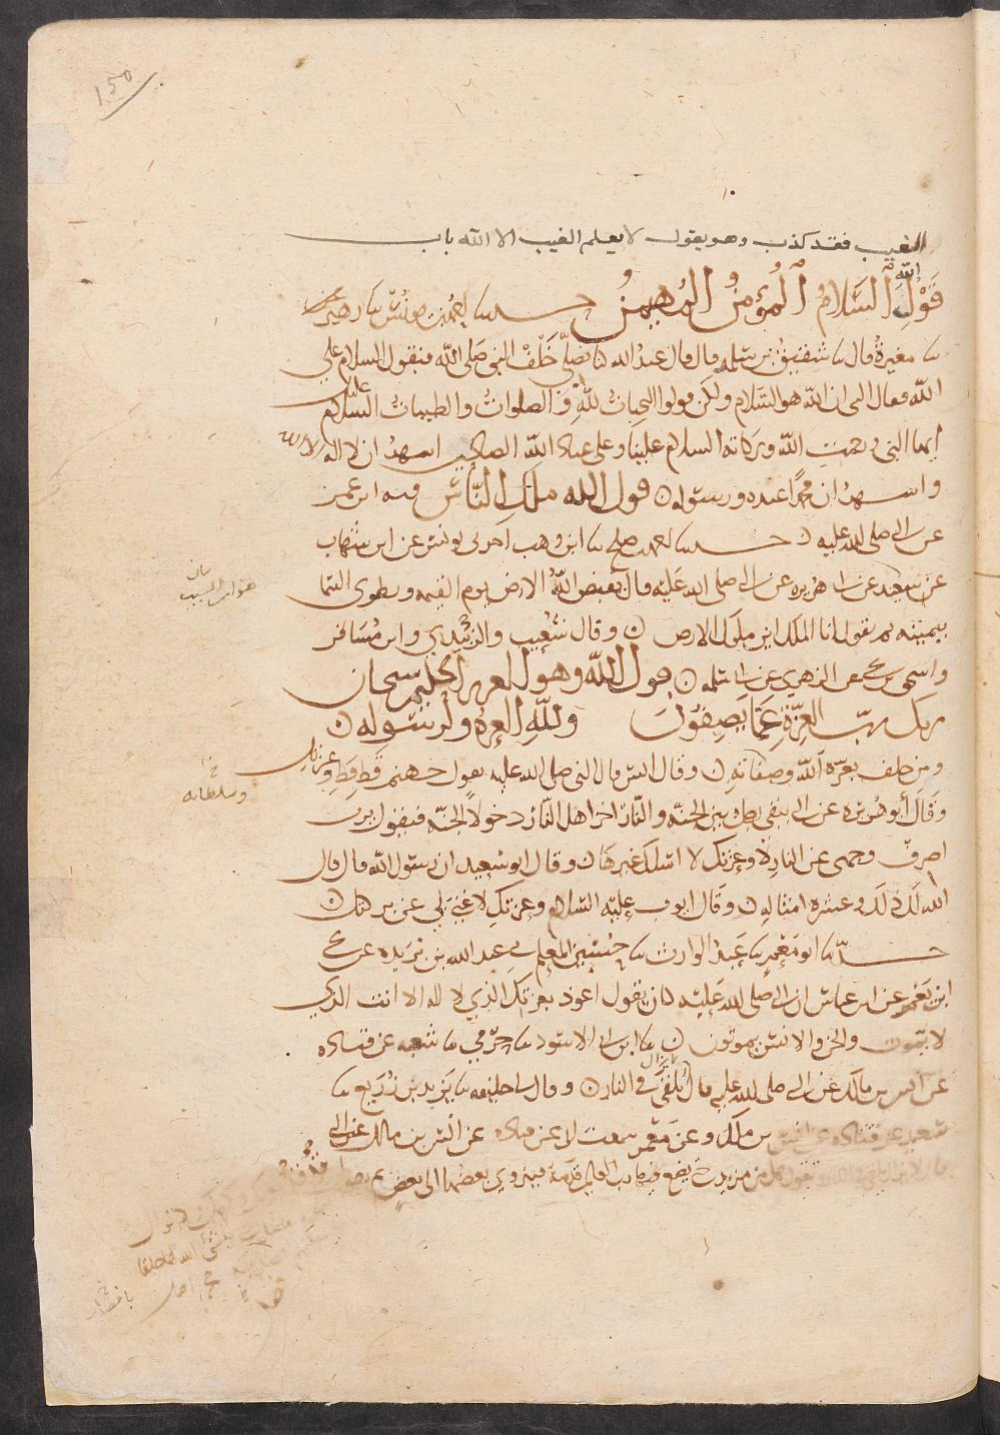 ١٥٥
الغيب فقد كذب وهو يقول لا يعلم الغيب الا الله باب
قَوْلِ الله السَّلَامُ الْمُؤمِنُ المُهيمِنُ حدثنا احمد بن يونس نا زهير
نا مغيرة قال نا شقيق بن سلمة قال قال عبد الله كنا نصلي خَلْفَ النبي صَلى الله فنقول السلام على
الله فقال النبي ان الله هو السَّلام ولكن قولوا التحيات للهِ والصلوات والطيبات السلام عليك
ايها النبي ورحمت الله وبركاته السلام علينا وعلى عباد الله الصالحين اشهد ان لا اله الا الله
واشهد ان محمدا عبده ورسوله قول الله ملك النَّاس فيه ابن عمر
عن النبي صلى الله عليه حدثنا احمد بن صلح نا ابن وهب اخبرني يونس عن ابن شهاب
عن سعيد عن ابي هريرة عن النبي صلى الله عَليه قال يقبض اللهُ الارض يوم القيمه ويطوى السما
بيمينه ثم يقول انا الملك اين ملوك الارض وقال شُعيب والزبيدي وابن مُسَافر
واسحق بن يحيى عن الزهري عن ابي سلمه قول الله وهو العزيز الحكيم سبحان
ربك رب العِزَّةِ عَمَّا يَصِفُونَ وللهِ العزة ولرسوله
ومن حلف بعزة الله وصفاته وقال انس قال النبي صلى الله عليه يقول جهنم قَطِ قَطِ وعزتك
وسلطانه
وَقَالَ أبو هُريرة عن النبي يبقى رجل بين الجنة والنَّار اخر اهل النَّار دخولًا الجنّة فيقول يرب
اصرف وجهي عن النار لا وعزتك لا اسلك غيرها وقال ابو سَعيد ان رسول الله قال قال
الله لَكَ ذلَك وعشره امثاله وقَال ايوب عليه السَّلام وعزتكِ لا غِنى بي عن بركتك
حدَّثنا ابو مَعْمرٍ نا عَبد الوارث نا حُسَين المعلم عبد الله بن بُرَيده عن يحيى
ابن يَعْمر عن ابن عباس ان النبي صلى الله عَليه كان يقول اعوذ بعزتك الذي لا اله الا انت الذي
لا تموت والجن والانس يموتون نا ابن ابي الاسود نا حَرَمي نا شعبه عن قتاده
عن انس بن مالك عن النبي صلى الله عليه قال يُلقى في النار وقال لي خليفه نا يَزيد بن زُرَيع نا
سعيد عن قتاده عن انس بن ملك وعَن مُعْتمر سمعت ابي عن قتاده عن انس بن مالك عن النبي
قال لا يزال يلقى في النار وتقول هل من مزيد حتى يضع فيها رب العالمين قدَمَه فينزوي بعضها الى بعض ثم تقول